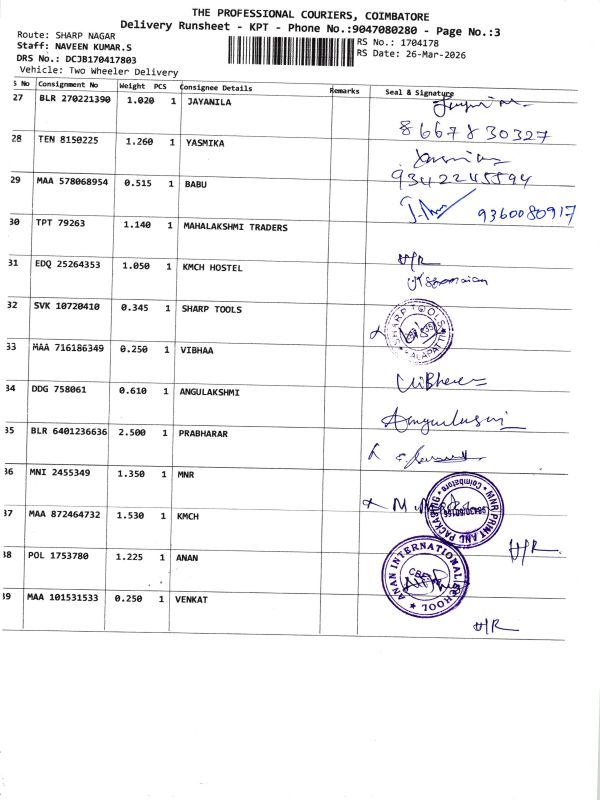 THE PROFESSIONAL COURIERS, COIMBATORE
Delivery Runsheet - KPT - Phone No.:9047080280 - Page No.:3
Route: SHARP NAGAR
RS No.: 1704178
Staff: NAVEEN KUMAR.S
RS Date: 26-Mar-2026
DRS No.: DCJB170417803
Vehicle: Two Wheeler Delivery
S No Consignment No Weight PCS Consignee Details Remarks Seal & Signature
27 BLR 270221390 1.020 1 JAYANILA
8667830327
28 TEN 8150225 1.260 1 YASMIKA
9342245594
29 MAA 578068954 0.515 1 BABU
9360080917
30 TPT 79263 1.140 1 MAHALAKSHMI TRADERS
H/R
31 EDQ 25264353 1.050 1 KMCH HOSTEL
32 SVK 10720410 0.345 1 SHARP TOOLS
SHARP TOOLS
KALAPATTI
33 MAA 716186349 0.250 1 VIBHAA
34 DDG 758061 0.610 1 ANGULAKSHMI
35 BLR 6401236636 2.500 1 PRABHARAR
36 MNI 2455349 1.350 1 MNR
MNR PRINT AND PACKAGING
Coimbatore
37 MAA 872464732 1.530 1 KMCH
H/R
38 POL 1753780 1.225 1 ANAN
ANAN INTERNATIONAL SCHOOL
CBE
39 MAA 101531533 0.250 1 VENKAT
H/R